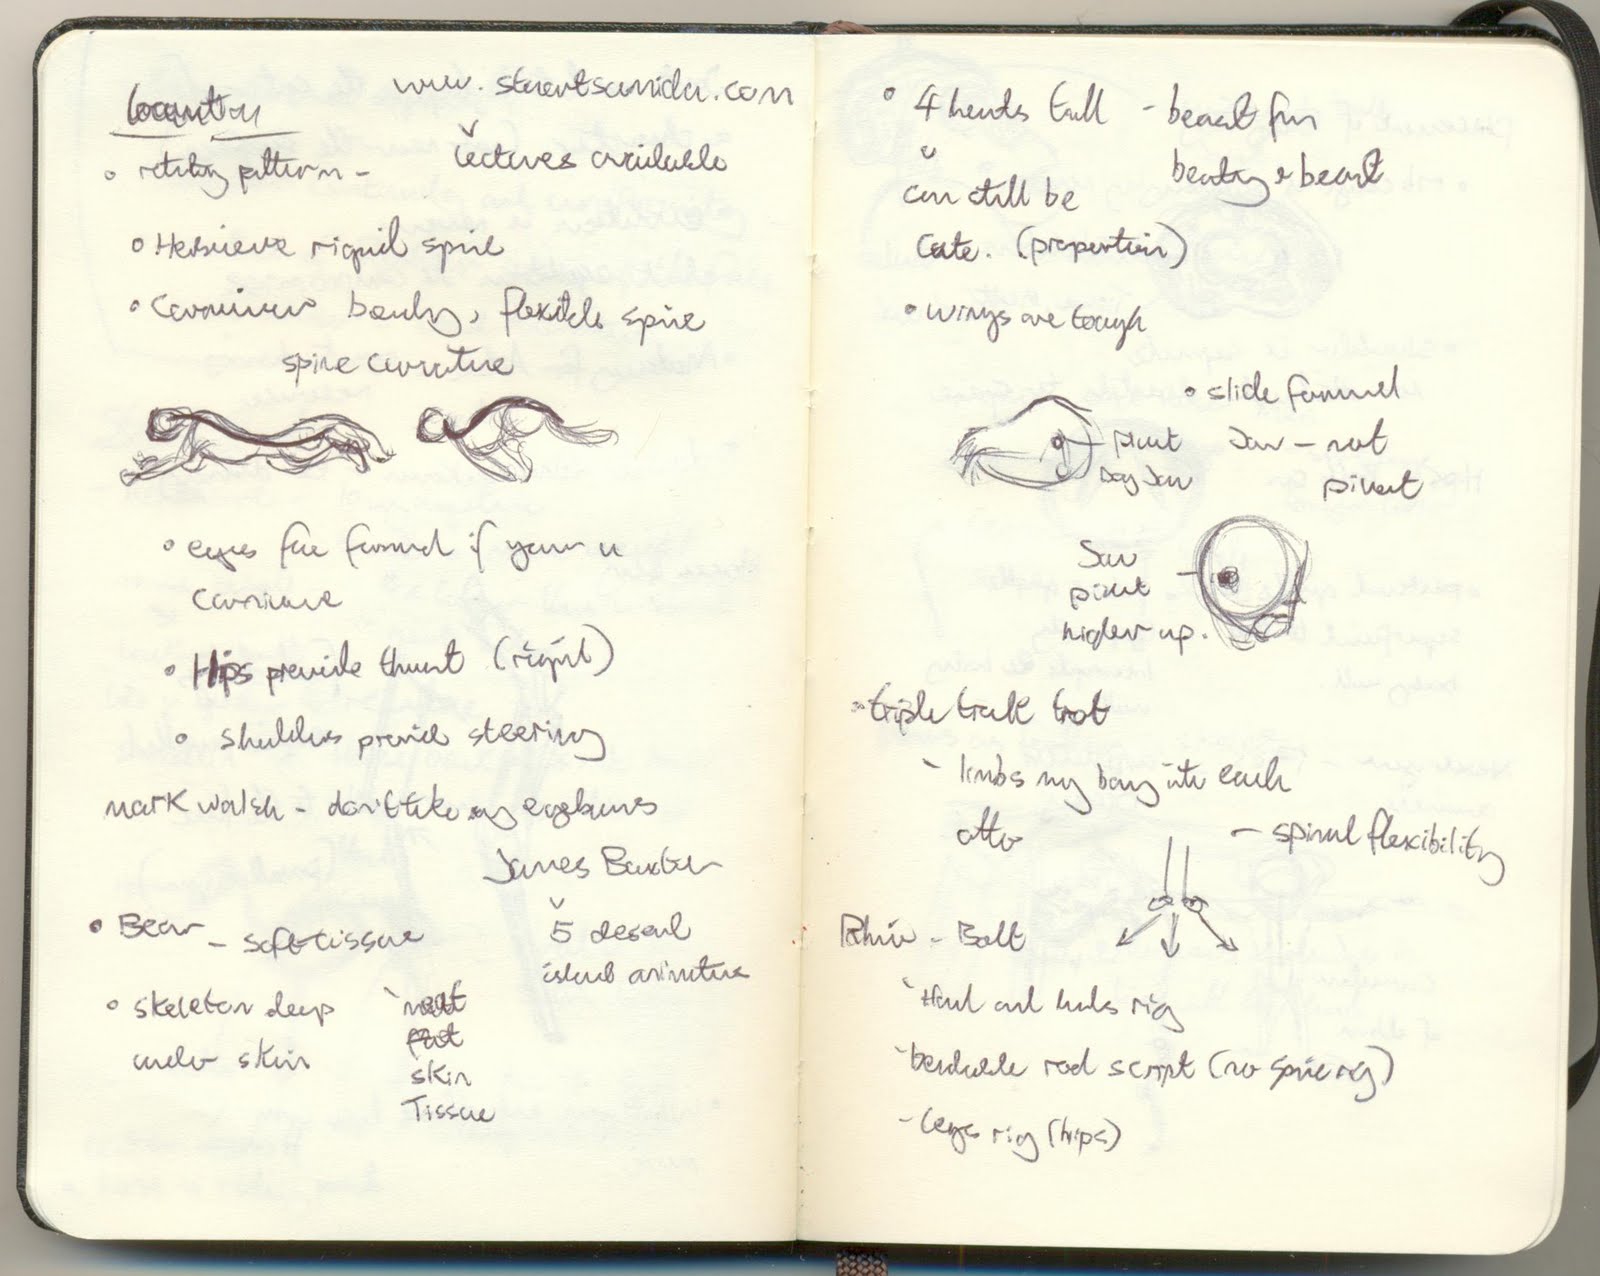 www.stuartsumida.com
lectures available
pattern -
rigid spine
bendy, flexible spine
spine curvature
eyes face forward if your a
carnivore
Hips provide thrust (rigid)
shoulders provide steering
mark walsh - don't like eyebrows
James Baxter
5 desert
island animators
Bear - soft tissue
skeleton deep
under skin
skin
Tissue
4 heads tall - beast from
beauty & beast
can still be
cute. (proportion)
wings are tough
slide forward
pivot Jaw - not
Dog Jaw pivot
Jaw
pivot
higher up.
triple track trot
- limbs may bang into each
other - spinal flexibility
Rhino - Bolt
bendable rod script (no spine rig)
- legs rig (hips)